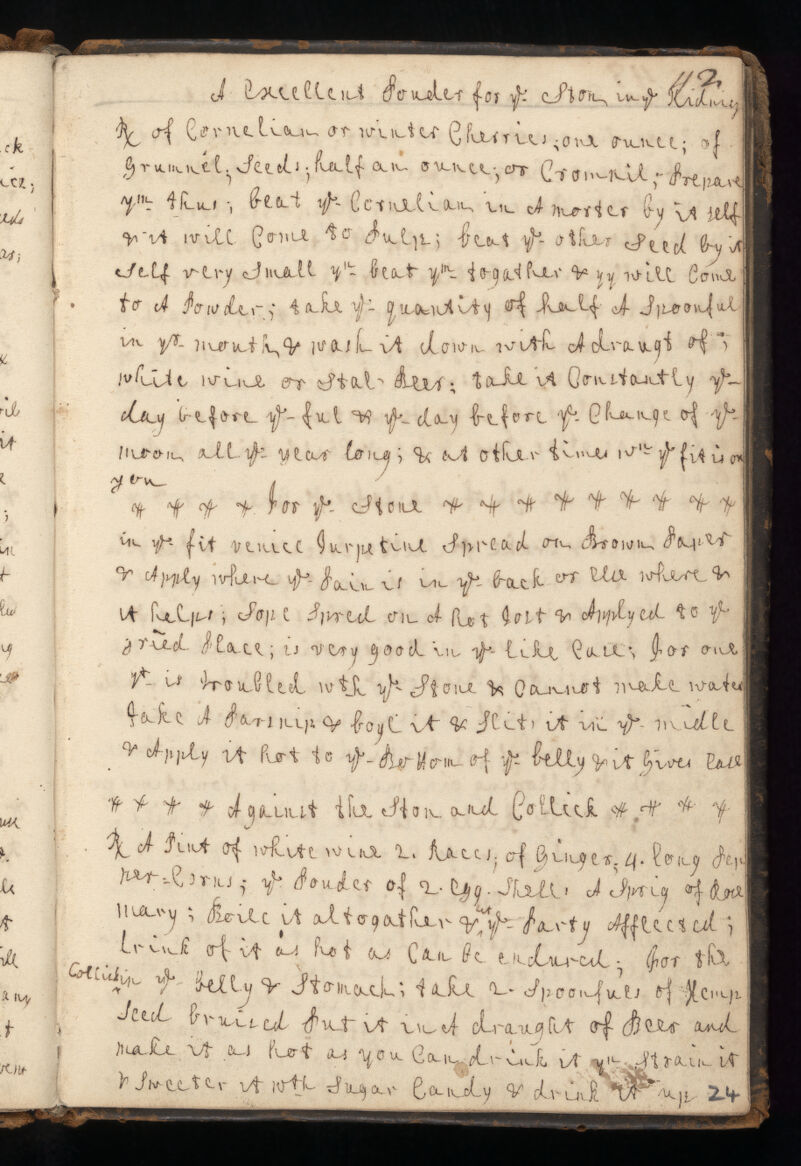 42
A Excellent Pouder for ye Ston in ye Kidnies
Rx of Cornelian or winter Cherries; one ounce; of
Grumnel; Seeds; half an ounce; or Cromnil; Prepare
ym thus; beat ye Cornelian in A morter by it self
& it will Come to Pulp; beat ye other Seed by it
self very Small yn beat ym togather & yy will Come
to A Powder; take ye quantity of half A Spoonful
in yr mouth & wash it down with A draugt of
white wine or Stal Beer; take it Constantly ye
day before ye ful & ye day before ye Change of ye
moon all ye year long; & at other times wn ye fit is on
you
For ye Stone
in ye fit venice Turpetine Spread on Brown Paper
& Apply where ye Pain is in ye back or Else where &
it helps; Sope Spred on A hot Tost & Applyed to ye
Place; is very good in ye like Case; For one
yt is troubled wth ye Stone & Cannot make water
take A Parsnip & boyl it & Slitt it in ye midle
& Apply it hot to ye Bottom of ye belly & it Gives Ease
Against the Ston and Collick
Rx A Pint of white wine 2. Races; of Ginger; 4. long Pep
per=Corns; ye Pouder of 2. Egg Shells A Sprig of Rose
mary; Boile it altogather & let ye Party Afflected;
Drink of it as hot as Can be endured; For the
Collick in ye belly & Stomach; take 2. Spoonfuls of Hemp
Seed bruised Put it in A draught of Beer and
make it as hot as you Can drink it yn Strain it
& Sweeter it wth Sugar Candy & drink it up 24
ck
eeds
as;
oil
it
;
in
t
ng
t
ill
any
t